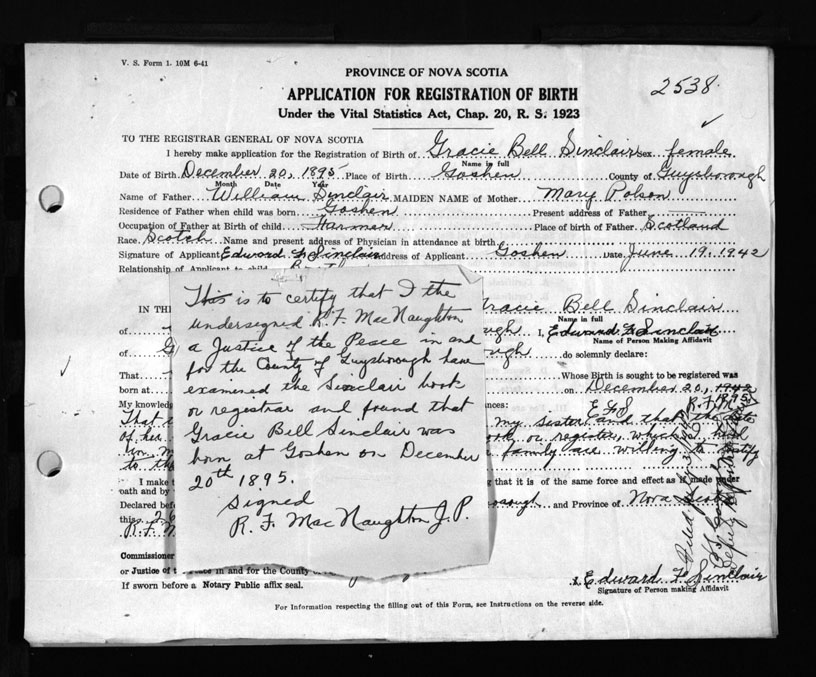 V. S. Form 1. 10M 6-41
PROVINCE OF NOVA SCOTIA
2538
APPLICATION FOR REGISTRATION OF BIRTH
Under the Vital Statistics Act, Chap. 20, R. S. 1923
TO THE REGISTRAR GENERAL OF NOVA SCOTIA
I hereby make application for the Registration of Birth of Gracie Bell Sinclair Sex female
Name in full
Date of Birth December 20, 1895 Place of Birth Goshen County of Guysborough
Month Date Year
Name of Father William Sinclair MAIDEN NAME of Mother Mary Polson
Residence of Father when child was born Goshen Present address of Father
Occupation of Father at Birth of child Farmer Place of birth of Father Scotland
Race Scotch Name and present address of Physician in attendance at birth
Signature of Applicant Edward F Sinclair Address of Applicant Goshen Date June 19, 1942
Relationship of Applicant to child
This is to certify that I the
undersigned R. F. MacNaughton
a Justice of the Peace in and
for the County of Guysborough have
examined the Sinclair book
or registrar and found that
Gracie Bell Sinclair was
born at Goshen on December
20th 1895.
Signed
R. F. MacNaughton J. P.
IN THE Gracie Bell Sinclair
Name in full
of I, Edward F Sinclair
Name of Person Making Affidavit
of do solemnly declare:
That Whose Birth is sought to be registered was
born at on December 20, 1942
1895
My knowledge
E F S R. F.
That my sister and that the date
of her book or register, which
family are willing to
to the
I make that it is of the same force and effect as if made under
oath and by
Declared before and Province of Nova Scotia
this 26
Commissioner
or Justice of the Peace in and for the County
If sworn before a Notary Public affix seal.
Edward F Sinclair
Signature of Person making Affidavit
For Information respecting the filling out of this Form, see Instructions on the reverse side.